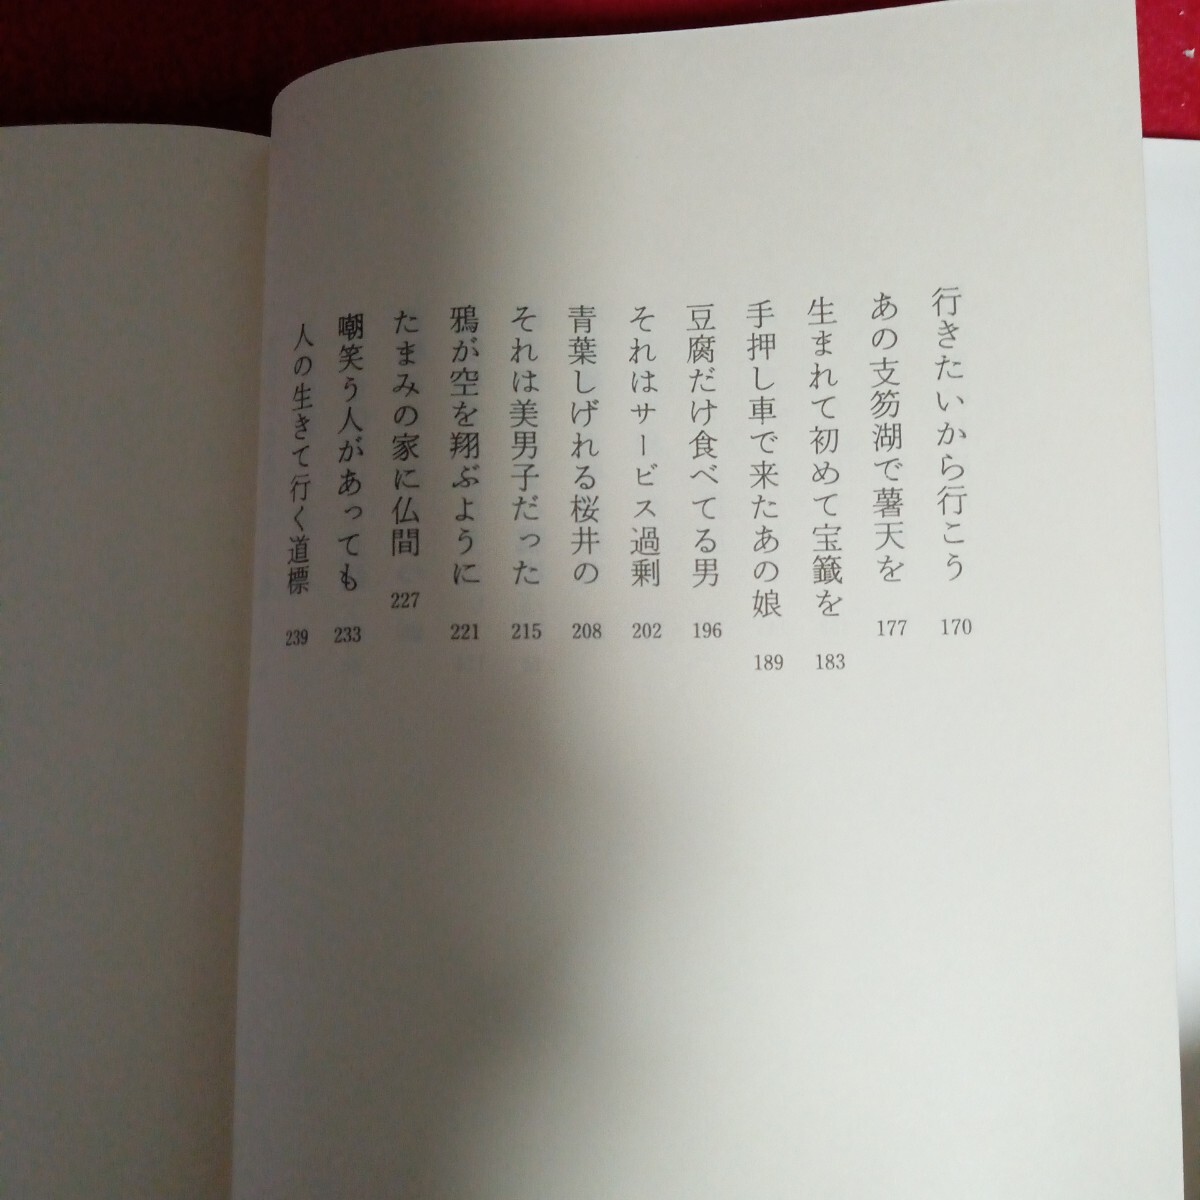 行きたいから行こう 170
あの支笏湖で薯天を 177
生まれて初めて宝籤を 183
手押し車で来たあの娘 189
豆腐だけ食べてる男 196
それはサービス過剰 202
青葉しげれる桜井の 208
それは美男子だった 215
鴉が空を翔ぶように 221
たまみの家に仏間 227
嘲笑う人があっても 233
人の生きて行く道標 239